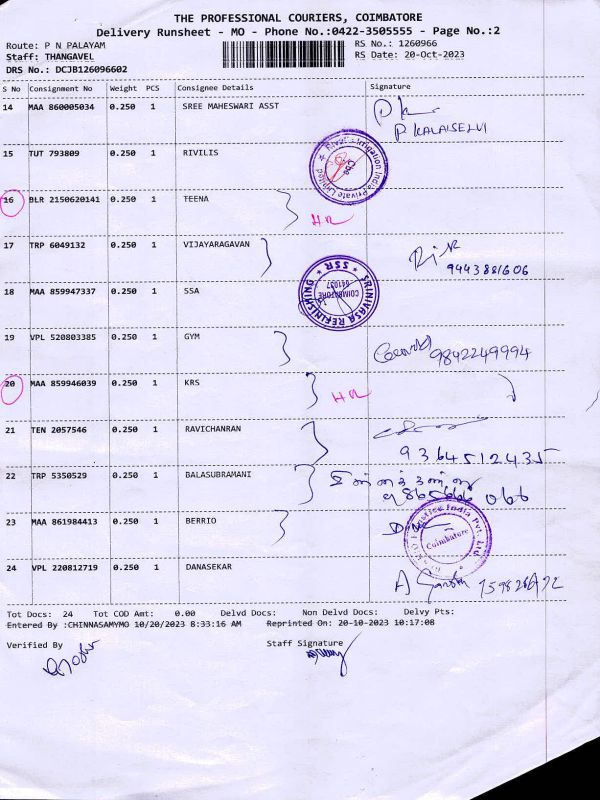 THE PROFESSIONAL COURIERS, COIMBATORE
Delivery Runsheet - MO - Phone No.:0422-3505555 - Page No.:2
Route: P N PALAYAM RS No.: 1260966
Staff: THANGAVEL RS Date: 20-Oct-2023
DRS No.: DCJB126096602
S No Consignment No Weight PCS Consignee Details Signature
14 MAA 860005034 0.250 1 SREE MAHESWARI ASST
P KALAISELVI
15 TUT 793809 0.250 1 RIVILIS
Rivulis Irrigation India Private Limited
16 BLR 2150620141 0.250 1 TEENA
HR
17 TRP 6049132 0.250 1 VIJAYARAGAVAN
9443881606
18 MAA 859947337 0.250 1 SSA
SRINIVASA REFINISHING
SSR
COIMBATORE
641037
19 VPL 520803385 0.250 1 GYM
9842249994
20 MAA 859946039 0.250 1 KRS
HR
21 TEN 2057546 0.250 1 RAVICHANRAN
9364512435
22 TRP 5350529 0.250 1 BALASUBRAMANI
23 MAA 861984413 0.250 1 BERRIO
India Pvt. Ltd
Coimbatore
24 VPL 220812719 0.250 1 DANASEKAR
Tot Docs: 24 Tot COD Amt: 0.00 Delvd Docs: Non Delvd Docs: Delvy Pts:
Entered By :CHINNASAMYMO 10/20/2023 8:33:16 AM Reprinted On: 20-10-2023 10:17:08
Verified By Staff Signature